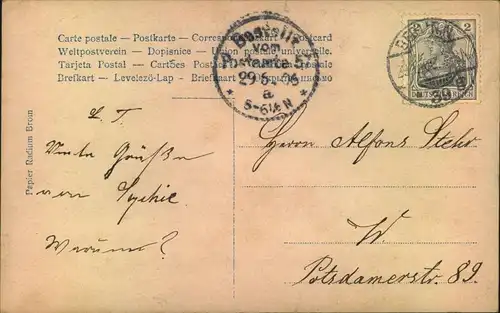 Carte postale - Postkarte - Correspondenzkarte - Postcard
Weltpostverein - Dopisnice - Union postale universelle.
Tarjeta Postal - Cartões Postaes
Brefkart - Levelező-Lap - Briefkaart
Bestellt
vom
Postamte 57
29 5
a
5-6¼N
BERLIN
39
2
Papier Radium Brom
L. T.
Viele Grüße
von Sophie
Warum?
Herrn Alfons Stehr
W.
Potsdamerstr. 89.